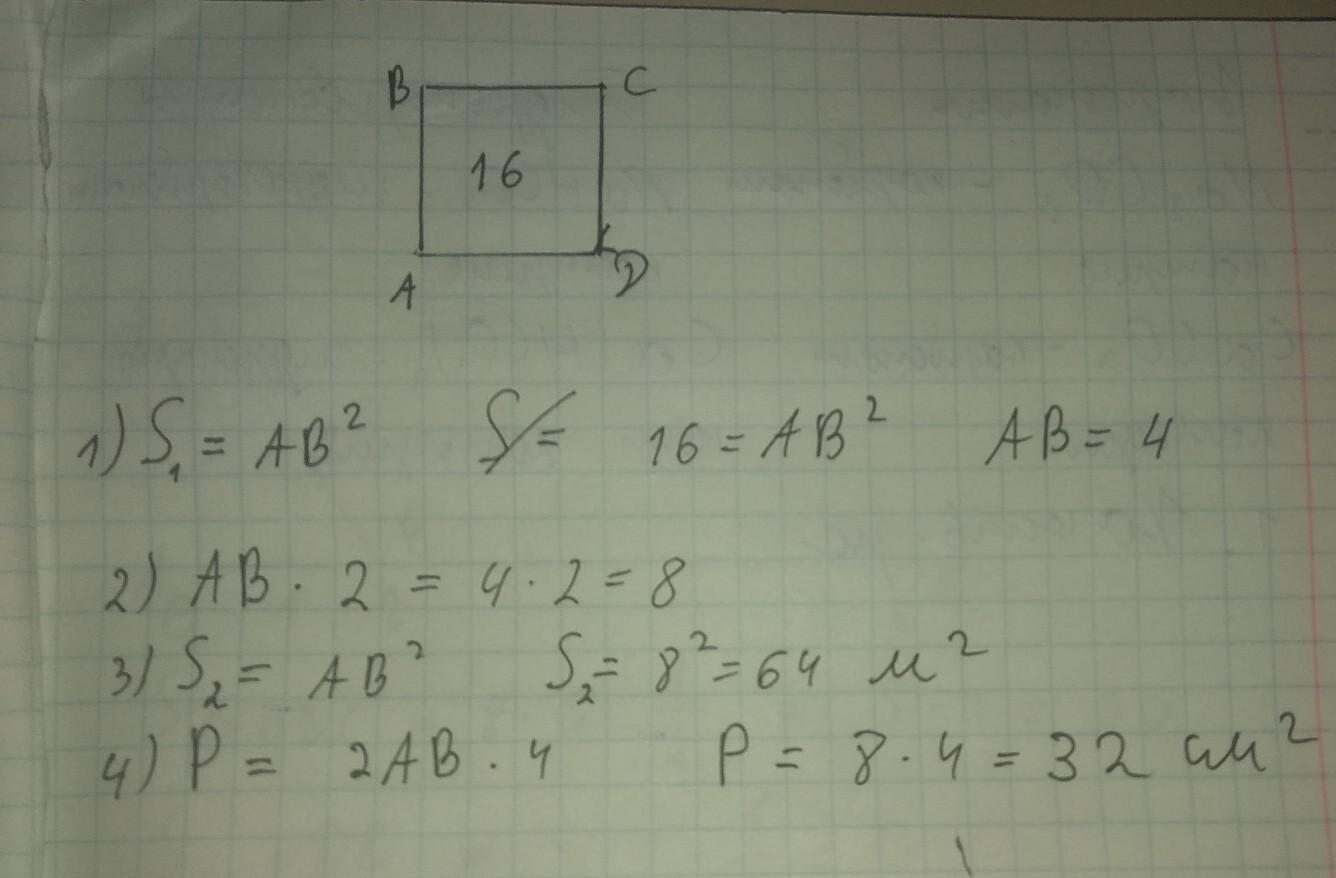 B C
16
A D
1) S₁ = AB² S= 16 = AB² AB = 4
2) AB · 2 = 4 · 2 = 8
3) S₂ = AB² S₂ = 8² = 64 м²
4) P = 2AB · 4 P = 8 · 4 = 32 см²